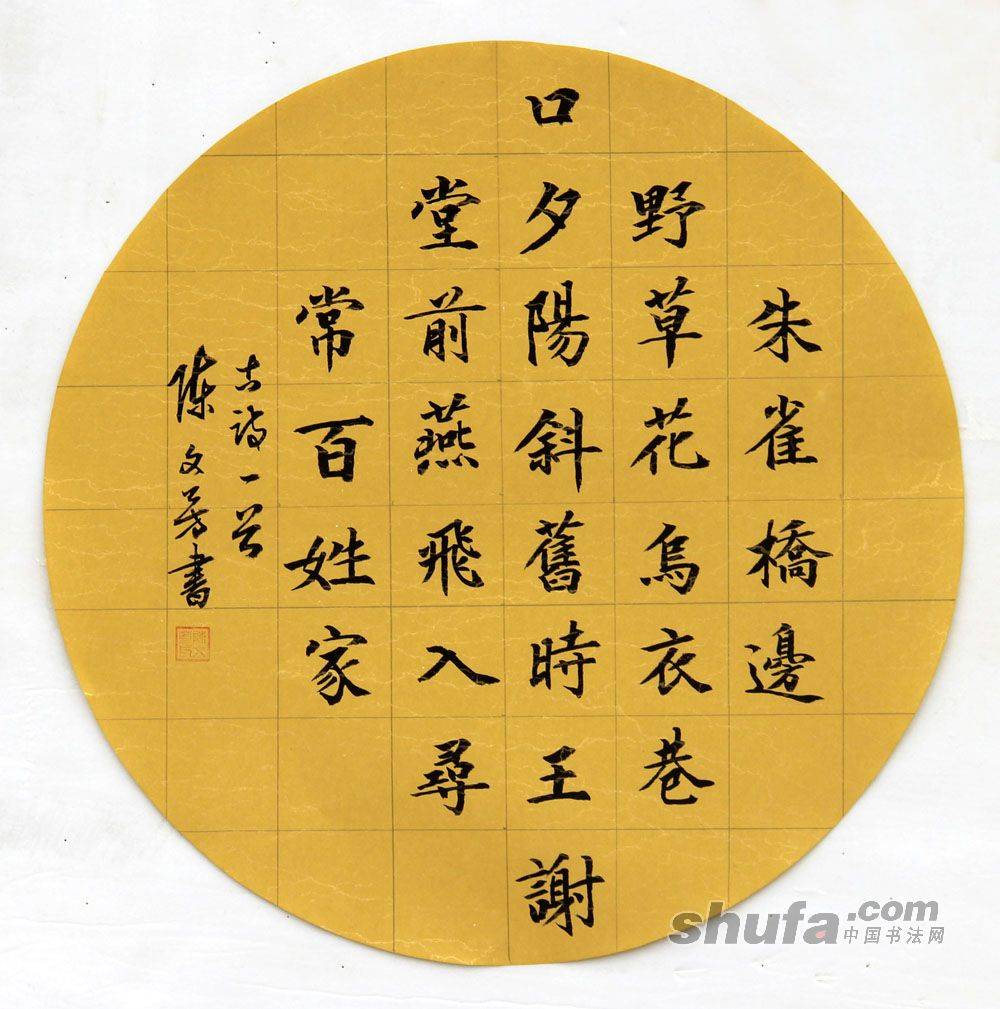 朱雀橋邊
野草花烏衣巷
口夕陽斜舊時王謝
堂前燕飛入尋
常百姓家
古詩一首
陳文芳書
shufa.com
中国书法网